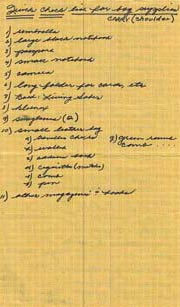 check list for bag supplies
carry (shoulder)
1) umbrella
2) large black notebook
3) passport
4) small notebook
5) camera
6) long folder for cards, etc
7) Book: Living Sober
8) kleenex
9) sunglasses (2)
10) small leather bag
a) travelers checks
b) wallet
c) address book
d) cigarettes (matches)
e) comb
f) pen
g) green round
comb ....
11) other magazines + books